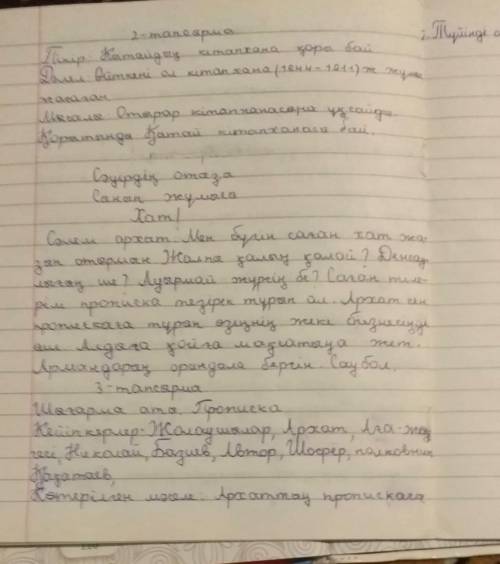 2-тапсырма
Пікір: Қытайдың кітапхана қоры бай
Дәлел: Өйткені ол кітапхана (1644-1911) ж жұмы
жасаған
Мысалы: Отырар кітапханасына ұқсайды
Қорытынды Қытай кітапханаға бай.
; Түйінді о
Сәуірдің отаза
Санап жұмыла
Хат!
Сәлем Архат. Мен бүгін саған хат жа-
зап отырмын Жалпы қалың қалай? Денсау
лығың ше? Ауырмай жүрсің бе? Саған тиле-
рім прописка тезірек тұрып ал. Архат сен
прописказа тұрып өзіңнің жеке бизнесіңді
аш. Алдыға қойға мақсатыңа жет.
Армандарың орындала берсін. Саубол.
3-тапсырма
Шығарма аты, Прописка
Кейіпкерлер: Жолаушылар, Архат, Аға-жең
гесі, Николай, Базиев, Автор, Шофер, полковник
Қазатаев,
Көтерілген мәселе: Архаттың прописказа